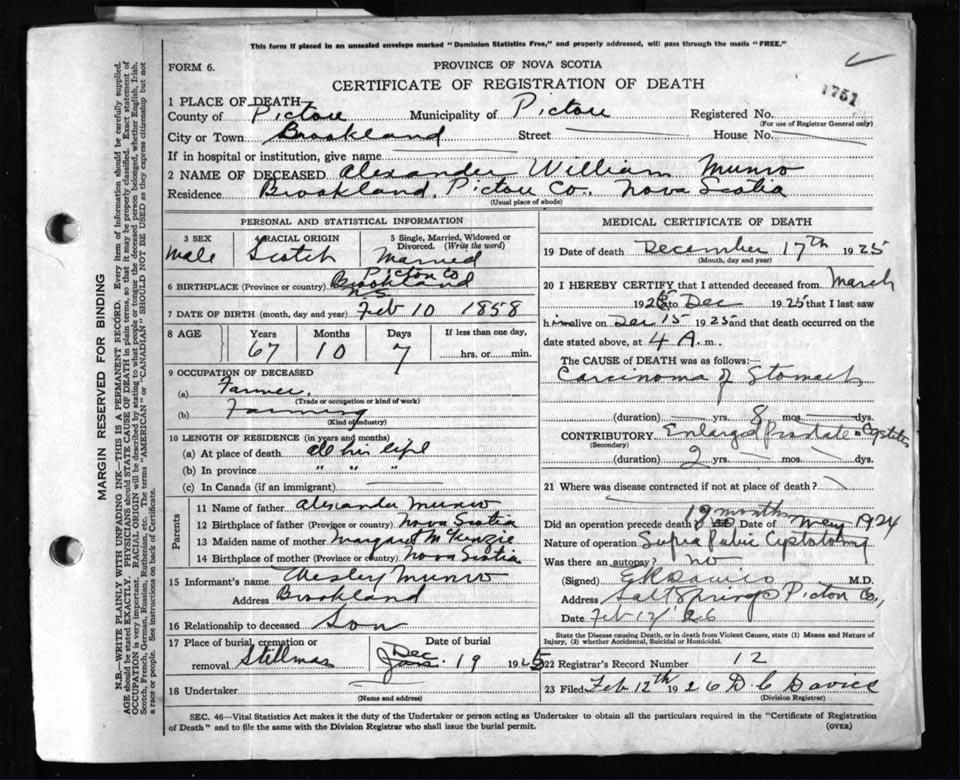 This form if placed in an unsealed envelope marked "Dominion Statistics Free," and properly addressed, will pass through the mails "FREE."
FORM 6.
PROVINCE OF NOVA SCOTIA
CERTIFICATE OF REGISTRATION OF DEATH
1751
1 PLACE OF DEATH
County of Pictou Municipality of Pictou Registered No.
(For use of Registrar General only)
City or Town Brookland Street House No.
If in hospital or institution, give name
2 NAME OF DECEASED Alexander William Munro
Residence Brookland, Pictou Co., Nova Scotia
(Usual place of abode)
PERSONAL AND STATISTICAL INFORMATION
3 SEX Male
4 RACIAL ORIGIN Scotch
5 Single, Married, Widowed or Divorced. (Write the word) Married
6 BIRTHPLACE (Province or country) Brookland Pictou Co N.S.
7 DATE OF BIRTH (month, day and year) Feb 10 1858
8 AGE Years 67 Months 10 Days 7 If less than one day, hrs. or min.
9 OCCUPATION OF DECEASED
(a) Farmer
(Trade or occupation or kind of work)
(b) Farming
(Kind of industry)
10 LENGTH OF RESIDENCE (in years and months)
(a) At place of death all his life
(b) In province " " "
(c) In Canada (if an immigrant)
Parents
11 Name of father Alexander Munro
12 Birthplace of father (Province or country) Nova Scotia
13 Maiden name of mother Margaret McKenzie
14 Birthplace of mother (Province or country) Nova Scotia
15 Informant's name Wesley Munro
Address Brookland
16 Relationship to deceased Son
17 Place of burial, cremation or removal Stillman
Date of burial Dec Jan. 19 1925
18 Undertaker
(Name and address)
MEDICAL CERTIFICATE OF DEATH
19 Date of death December 17th 1925
(Month, day and year)
20 I HEREBY CERTIFY that I attended deceased from March
192 to Dec 1925 that I last saw
him alive on Dec 15 1925 and that death occurred on the
date stated above, at 4 A. m.
The CAUSE OF DEATH was as follows:
Carcinoma of Stomach
(duration) yrs. 8 mos. dys.
CONTRIBUTORY Enlarged Prostate & Cystitis
(Secondary)
(duration) 2 yrs. mos. dys.
21 Where was disease contracted if not at place of death?
19 months
Did an operation precede death? Date of May 1924
Nature of operation Supra Pubic Cystotomy
Was there an autopsy? No
(Signed) M.D.
Address Salt Springs Pictou Co.,
Date Feb 12 / 26
State the Disease causing Death, or in death from Violent Causes, state (1) Means and Nature of
Injury, (2) whether Accidental, Suicidal or Homicidal.
22 Registrar's Record Number 12
23 Filed Feb 12th 1926 D. C. Davies
(Division Registrar)
SEC. 46—Vital Statistics Act makes it the duty of the Undertaker or person acting as Undertaker to obtain all the particulars required in the "Certificate of Registration
of Death" and to file the same with the Division Registrar who shall issue the burial permit. (OVER)
MARGIN RESERVED FOR BINDING
N.B.—WRITE PLAINLY WITH UNFADING INK—THIS IS A PERMANENT RECORD. Every item of information should be carefully supplied.
AGE should be stated EXACTLY. PHYSICIANS should STATE CAUSE OF DEATH in plain terms, so that it may be properly classified. Exact statement of
OCCUPATION is very important. RACIAL ORIGIN will be described by stating to what people or tongue the deceased person belonged, whether English, Irish,
Scotch, French, German, Russian, Ruthenian, etc. The terms "AMERICAN" or "CANADIAN" SHOULD NOT BE USED as they express citizenship but not
a race or people. See instructions on back of Certificate.